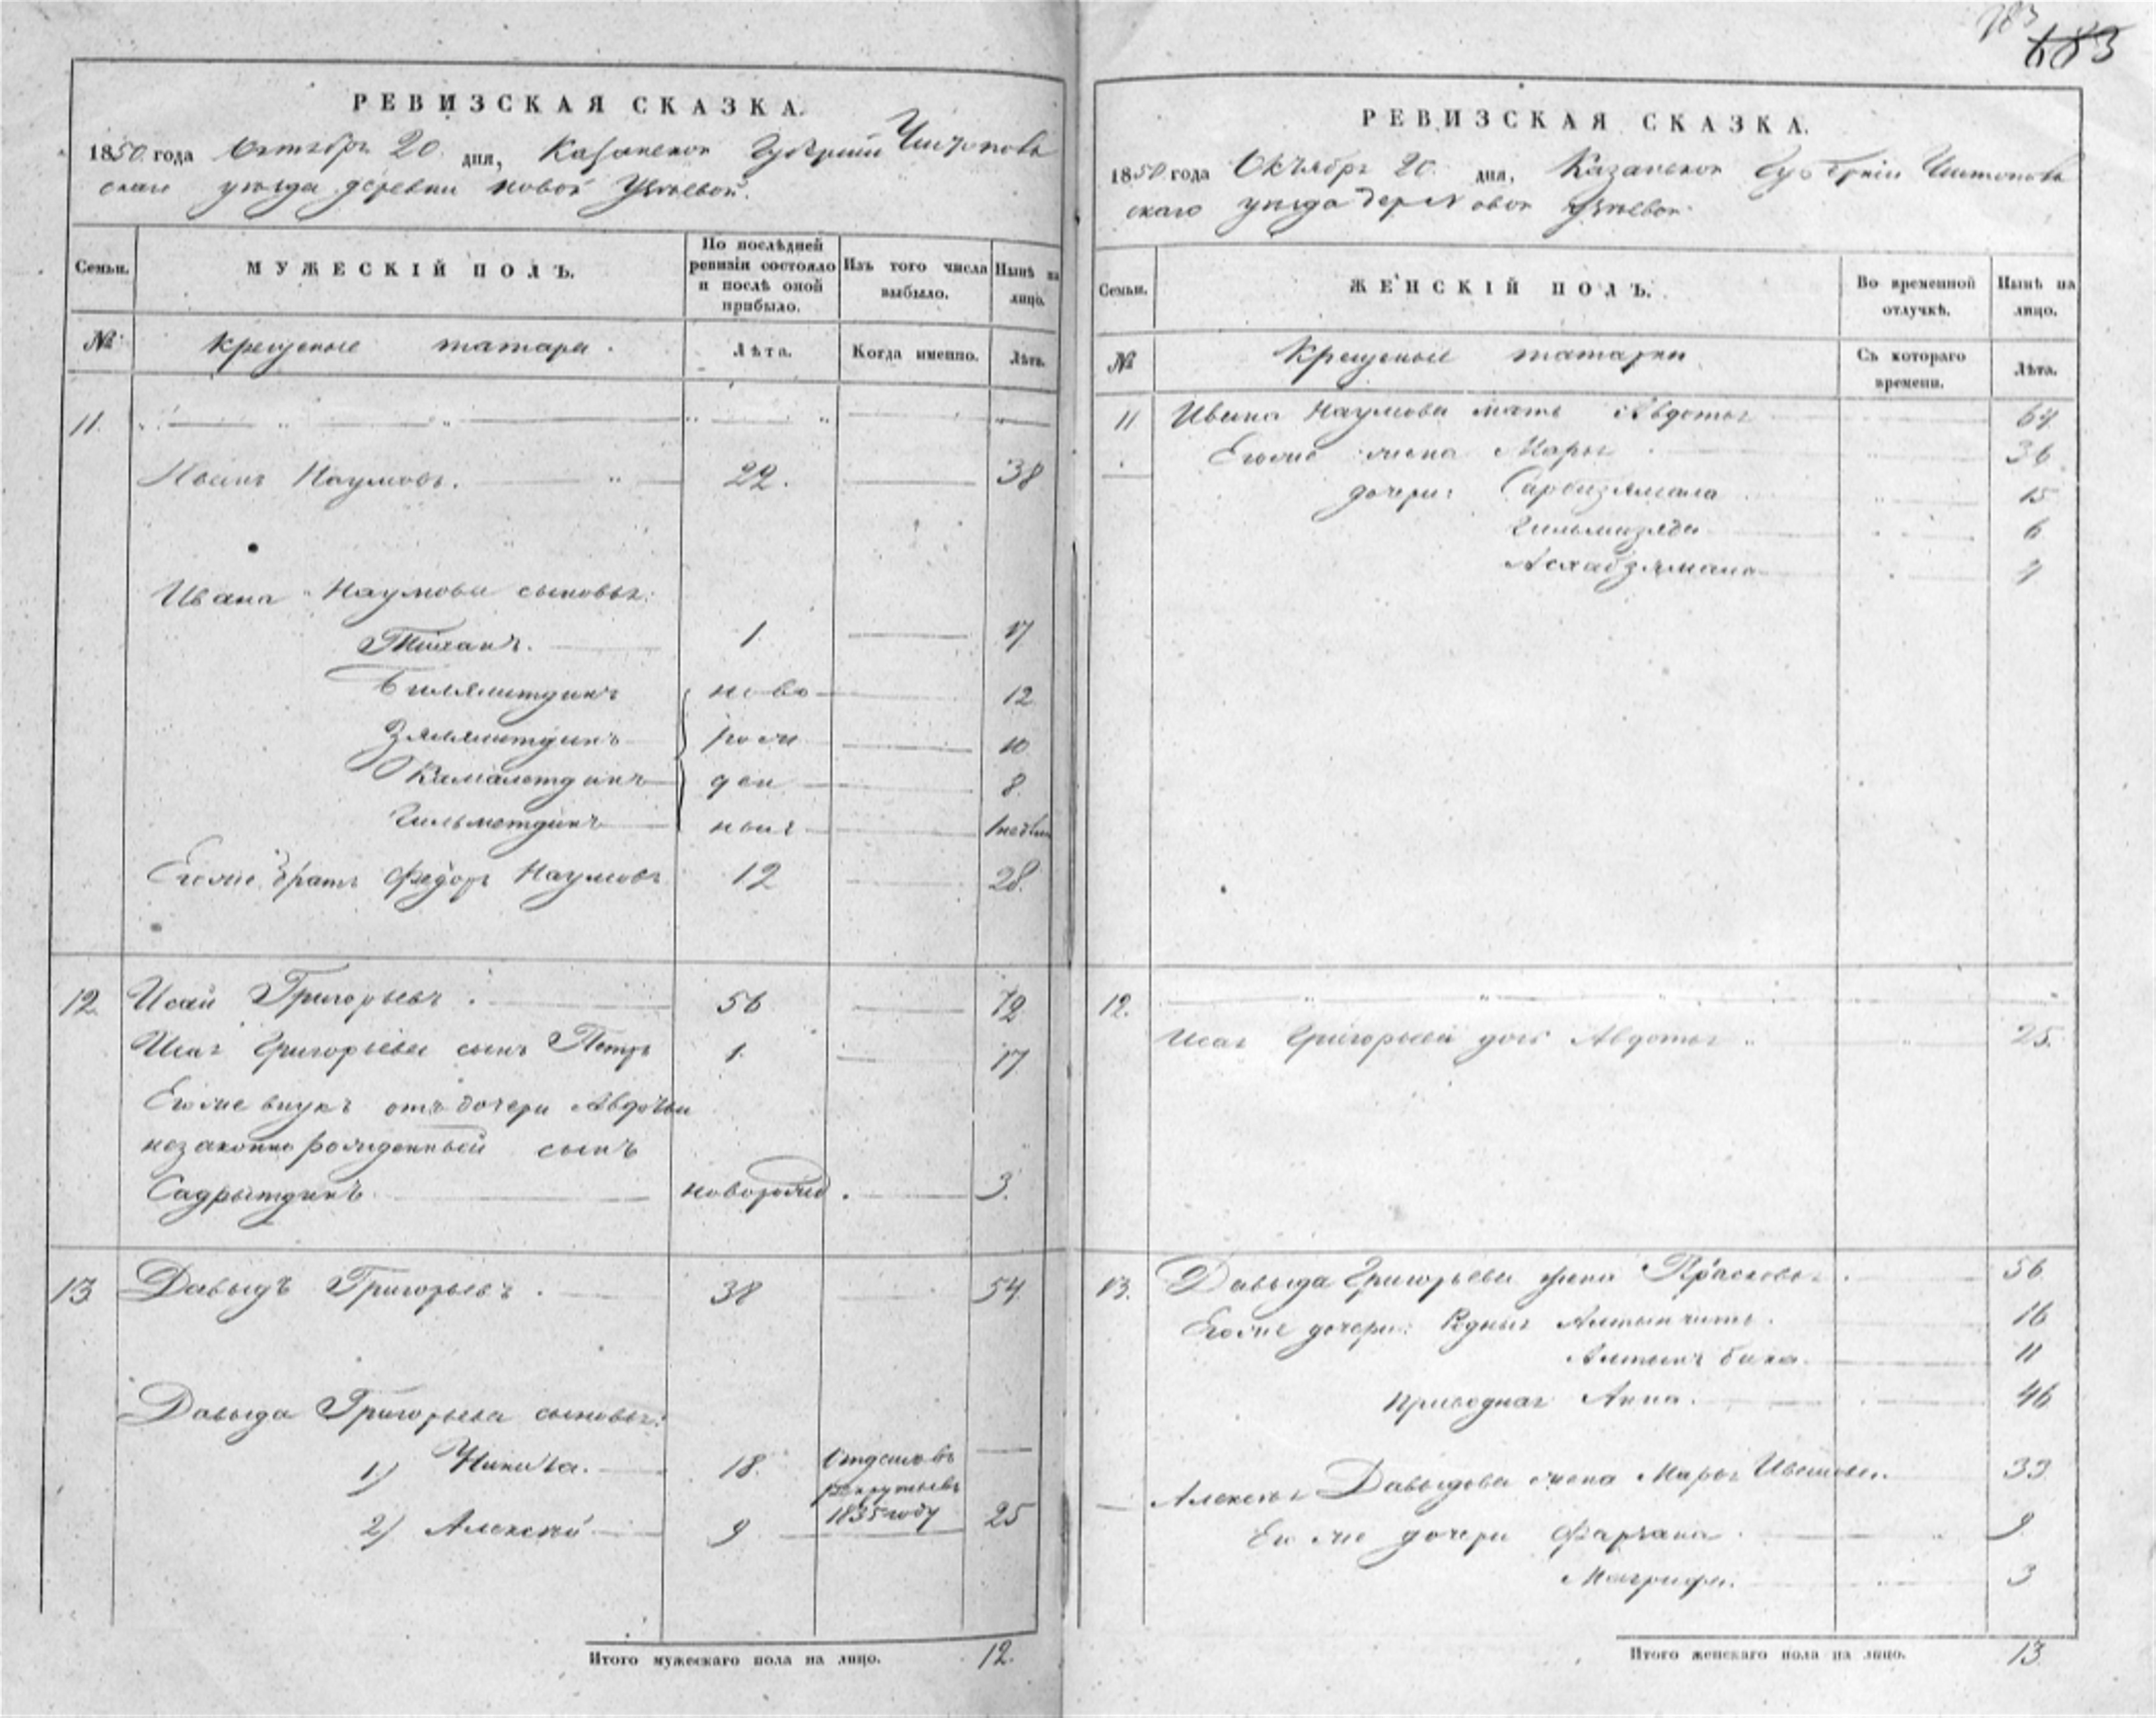 683
РЕВИЗСКАЯ СКАЗКА.
1850 года Октября 20 дня, Казанской Губерніи Чистополь
скаго уѣзда деревни новой
Семьи.
МУЖЕСКІЙ ПОЛЪ.
По послѣдней
ревизіи состояло
и послѣ оной
прибыло.
Изъ того числа
выбыло.
Нынѣ на
лицо.
№
крещеные татара.
Лѣта.
Когда именно.
Лѣта.
11.
Иванъ Наумовъ. 22. 38
Ивана Наумова сыновья:
1. 17
Билялитдинъ ново 12
Зялялитдинъ рож 10
Камалетдинъ ден 8.
Гильметдинъ ныя
Егоже братъ Федоръ Наумовъ 12 28.
12. Исай Григорьевъ. 56 72
Исая Григорьева сынъ Петръ 1. 17
Егоже внукъ отъ дочери Авдотьи
незаконно рожденный сынъ
Садрытдинъ новорожд. 3.
13 Давыдъ Григорьевъ. 38 54
Давыда Григорьева сыновья:
1) Никита. 18. Отданъ въ
рекруты въ
1835 году
2) Алексѣй 9 25
Итого мужескаго пола на лицо. 12.
РЕВИЗСКАЯ СКАЗКА.
1850 года Октября 20. дня, Казанской Губерніи Чистополь
скаго уѣзда дер. Новой
Семьи.
ЖЕНСКІЙ ПОЛЪ.
Во временной
отлучкѣ.
Нынѣ на
лицо.
№
Крещеные татарки
Съ котораго
времени.
Лѣта.
11 Ивана Наумова мать Авдотья 64
Егоже жена Марья 36
дочери: Сарбизямала 15
6
Асхабзямала
12.
Исая Григорьева дочь Авдотья 25.
13. Давыда Григорьева жена Прасковья. 56
Егоже дочери: Родныя 16
Алтынъ бика. 11
Приводная Анна. 46
Алексѣя Давыдова жена Марья Иванова. 33
Его же дочери Фархана. 9
Магруфа. 3
Итого женскаго пола на лицо. 13